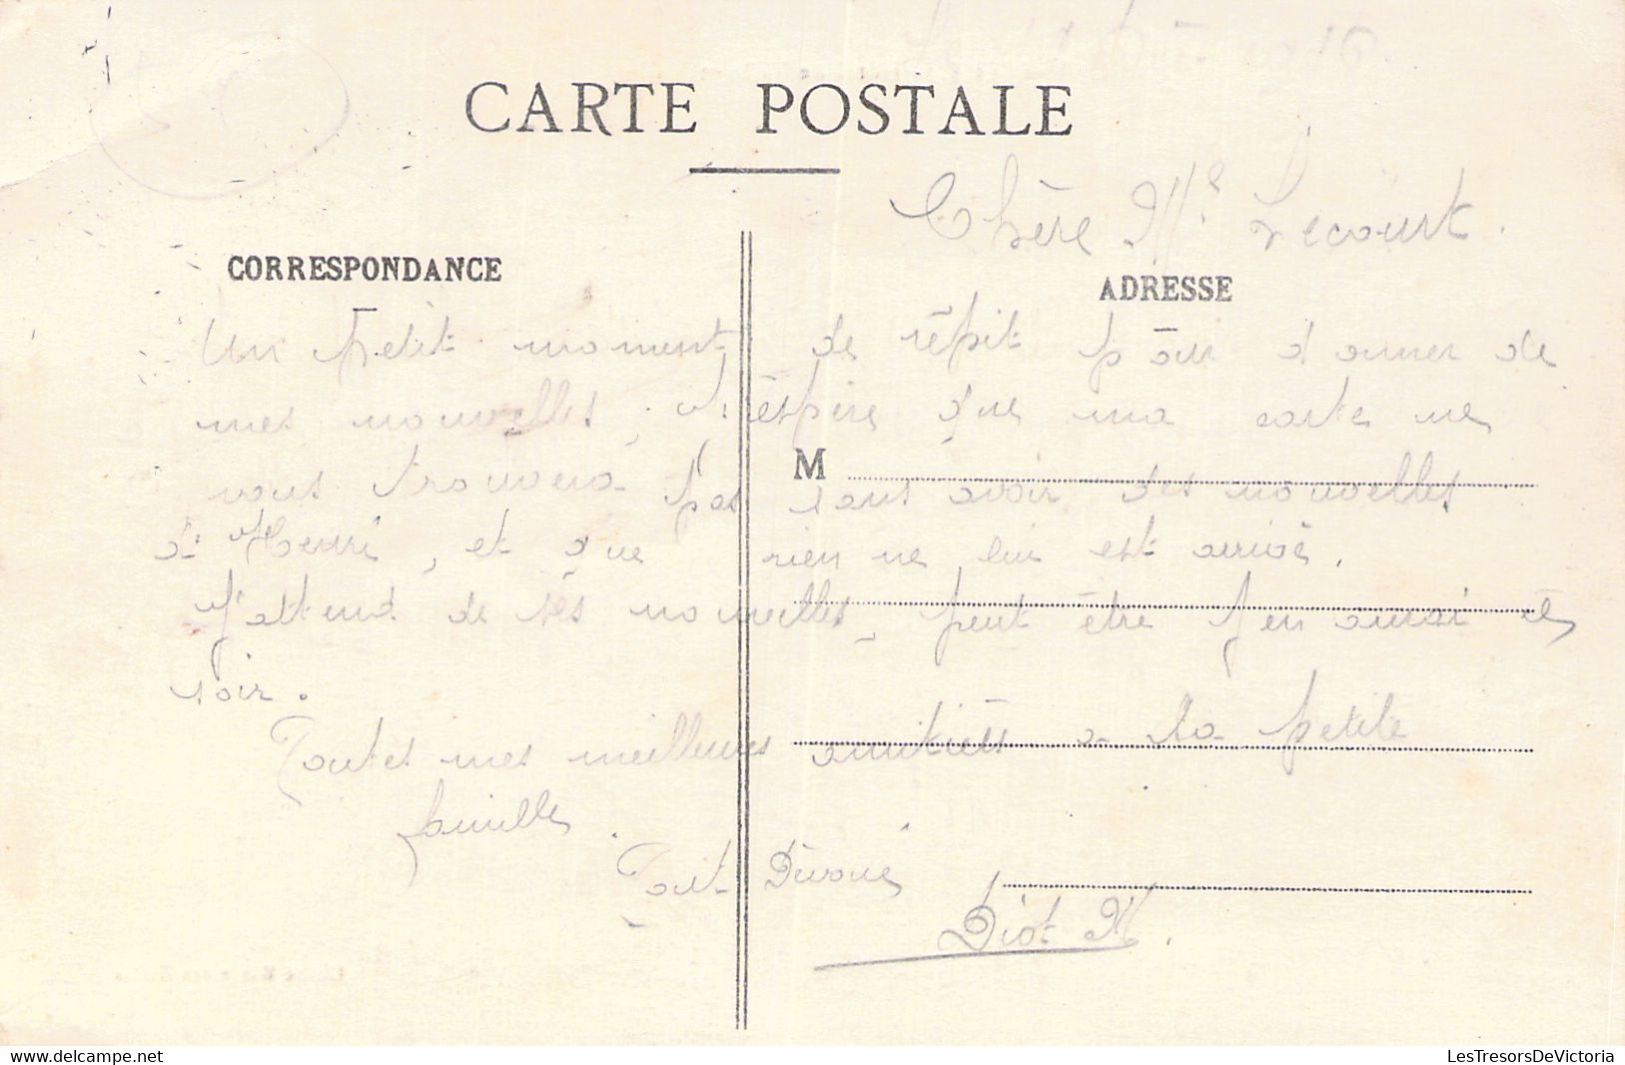 CARTE POSTALE
Chère Mme Lecourt.
CORRESPONDANCE
ADRESSE
Un petit moment de répit pour donner de
mes nouvelles, J'espère que ma carte ne
M
vous trouvera pas sans avoir des nouvelles
d'Henri, et que rien ne lui est arrivé.
J'attend de ses nouvelles, peut être j'en aurai ce
soir.
Toutes mes meilleures amitiés a la petite
famille.
Tout Dévoué
Diot M.
delcampe.net
LesTresorsDeVictoria